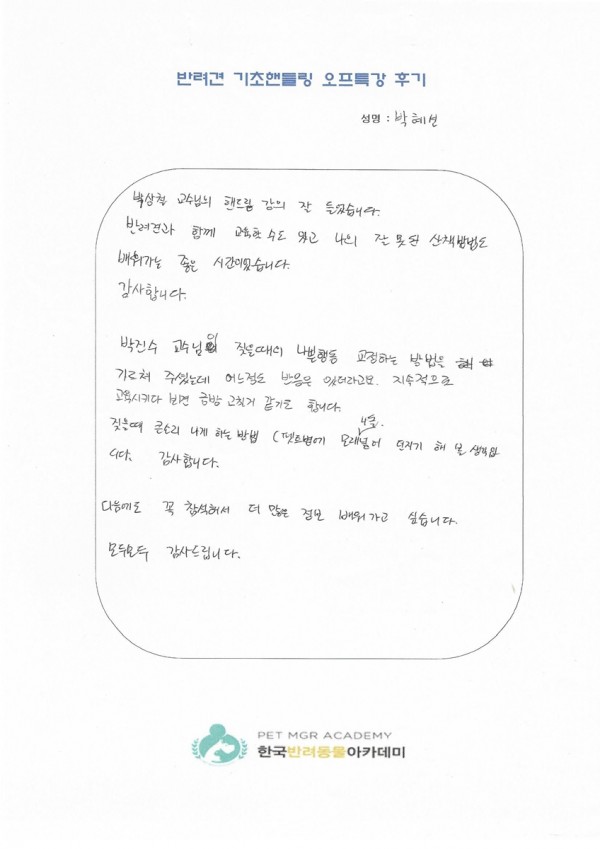 반려견 기초핸들링 오프특강 후기
성명 : 박혜선
박상철 교수님의 핸드림 강의 잘 들었습니다.
반려견과 함께 교육할 수도 있고 나의 잘못된 산책방법도
배워가는 좋은 시간이었습니다.
감사합니다.
박진수 교수님이 짖을때의 나쁜행동 교정하는 방법을
가르쳐 주셨는데 어느정도 반응은 있더라고요. 지속적으로
교육시키다 보면 금방 고칠거 같기도 합니다.
짖을때 큰소리 나게 하는 방법 (펫트병에 모래넣어 던지기 해 볼 생각입
니다. 감사합니다.
다음에도 꼭 참석해서 더 많은 정보 배워가고 싶습니다.
모두모두 감사드립니다.
PET MGR ACADEMY
한국반려동물아카데미